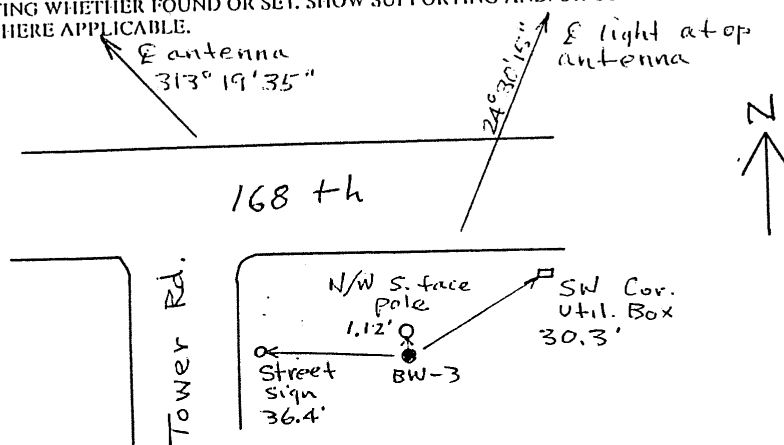 TING WHETHER FOUND OR SET. SHOW SUPPORTING AND/OR
HERE APPLICABLE.
℄ antenna
313° 19' 35"
℄ light atop
antenna
24° 30' 15"
N
168 th
Tower Rd.
N/W S. face
pole
1.12'
SW Cor.
Util. Box
30.3'
BW-3
Street
sign
36.4'